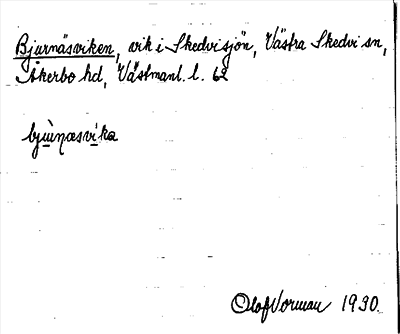 Bjurnäsviken, vik i Skedvisjön, Västra Skedvi sn,
Åkerbo hd, Västmanl. l. 62
Olof Vorman 1930.